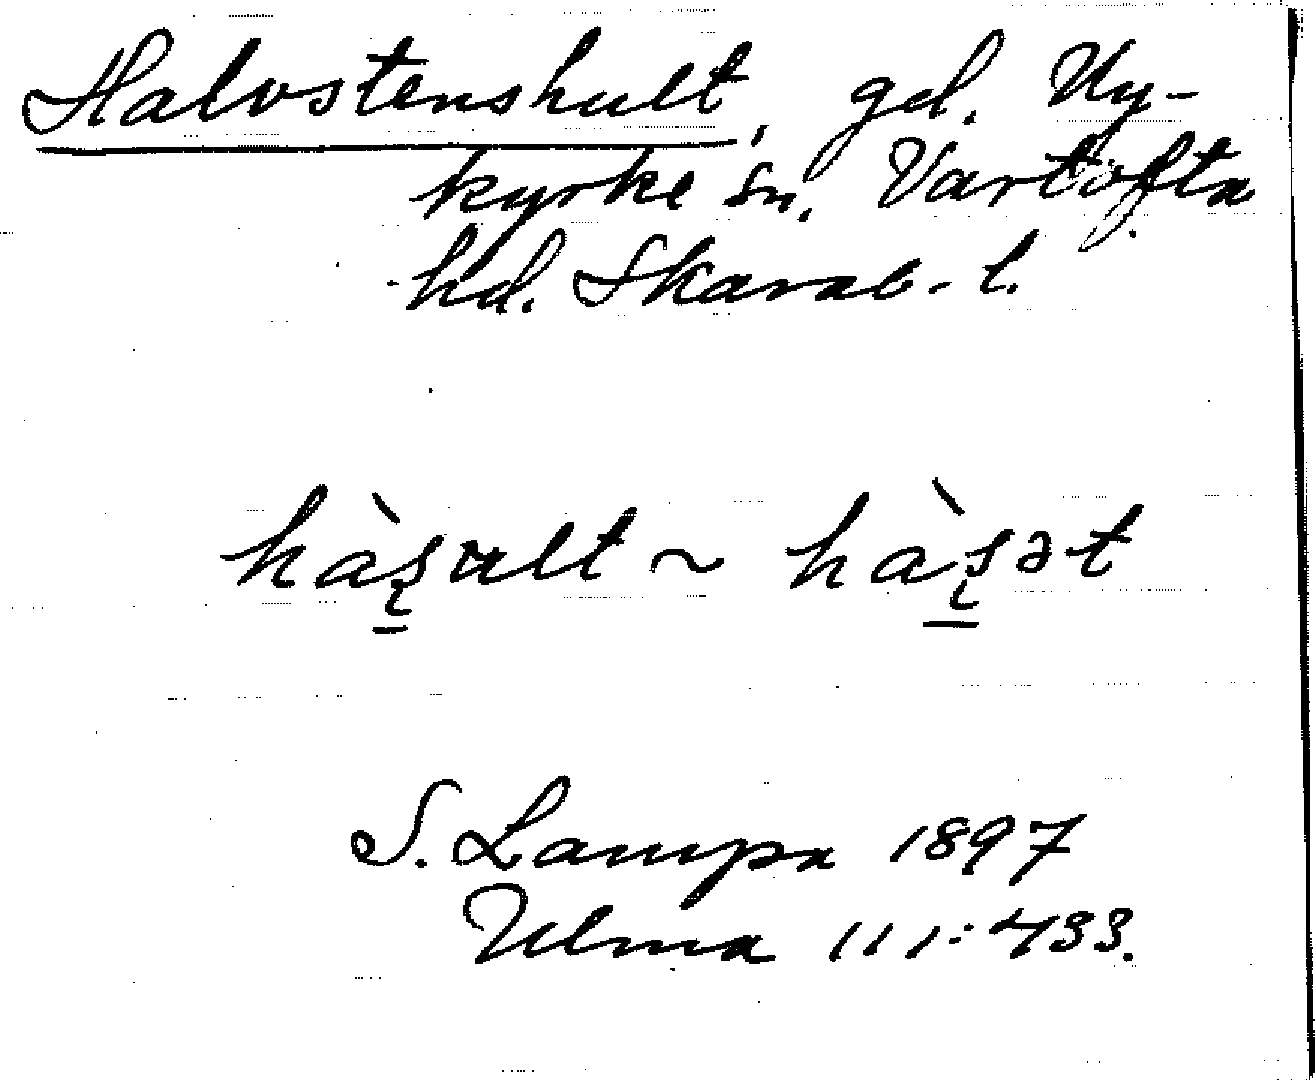 Halvstenshult, gd. Ny-
kyrke sn. Vartofta
hd. Skarab. l.
hàs̨ult ~ hàs̨ət
S. Lampa 1897
Ulma 111:433.